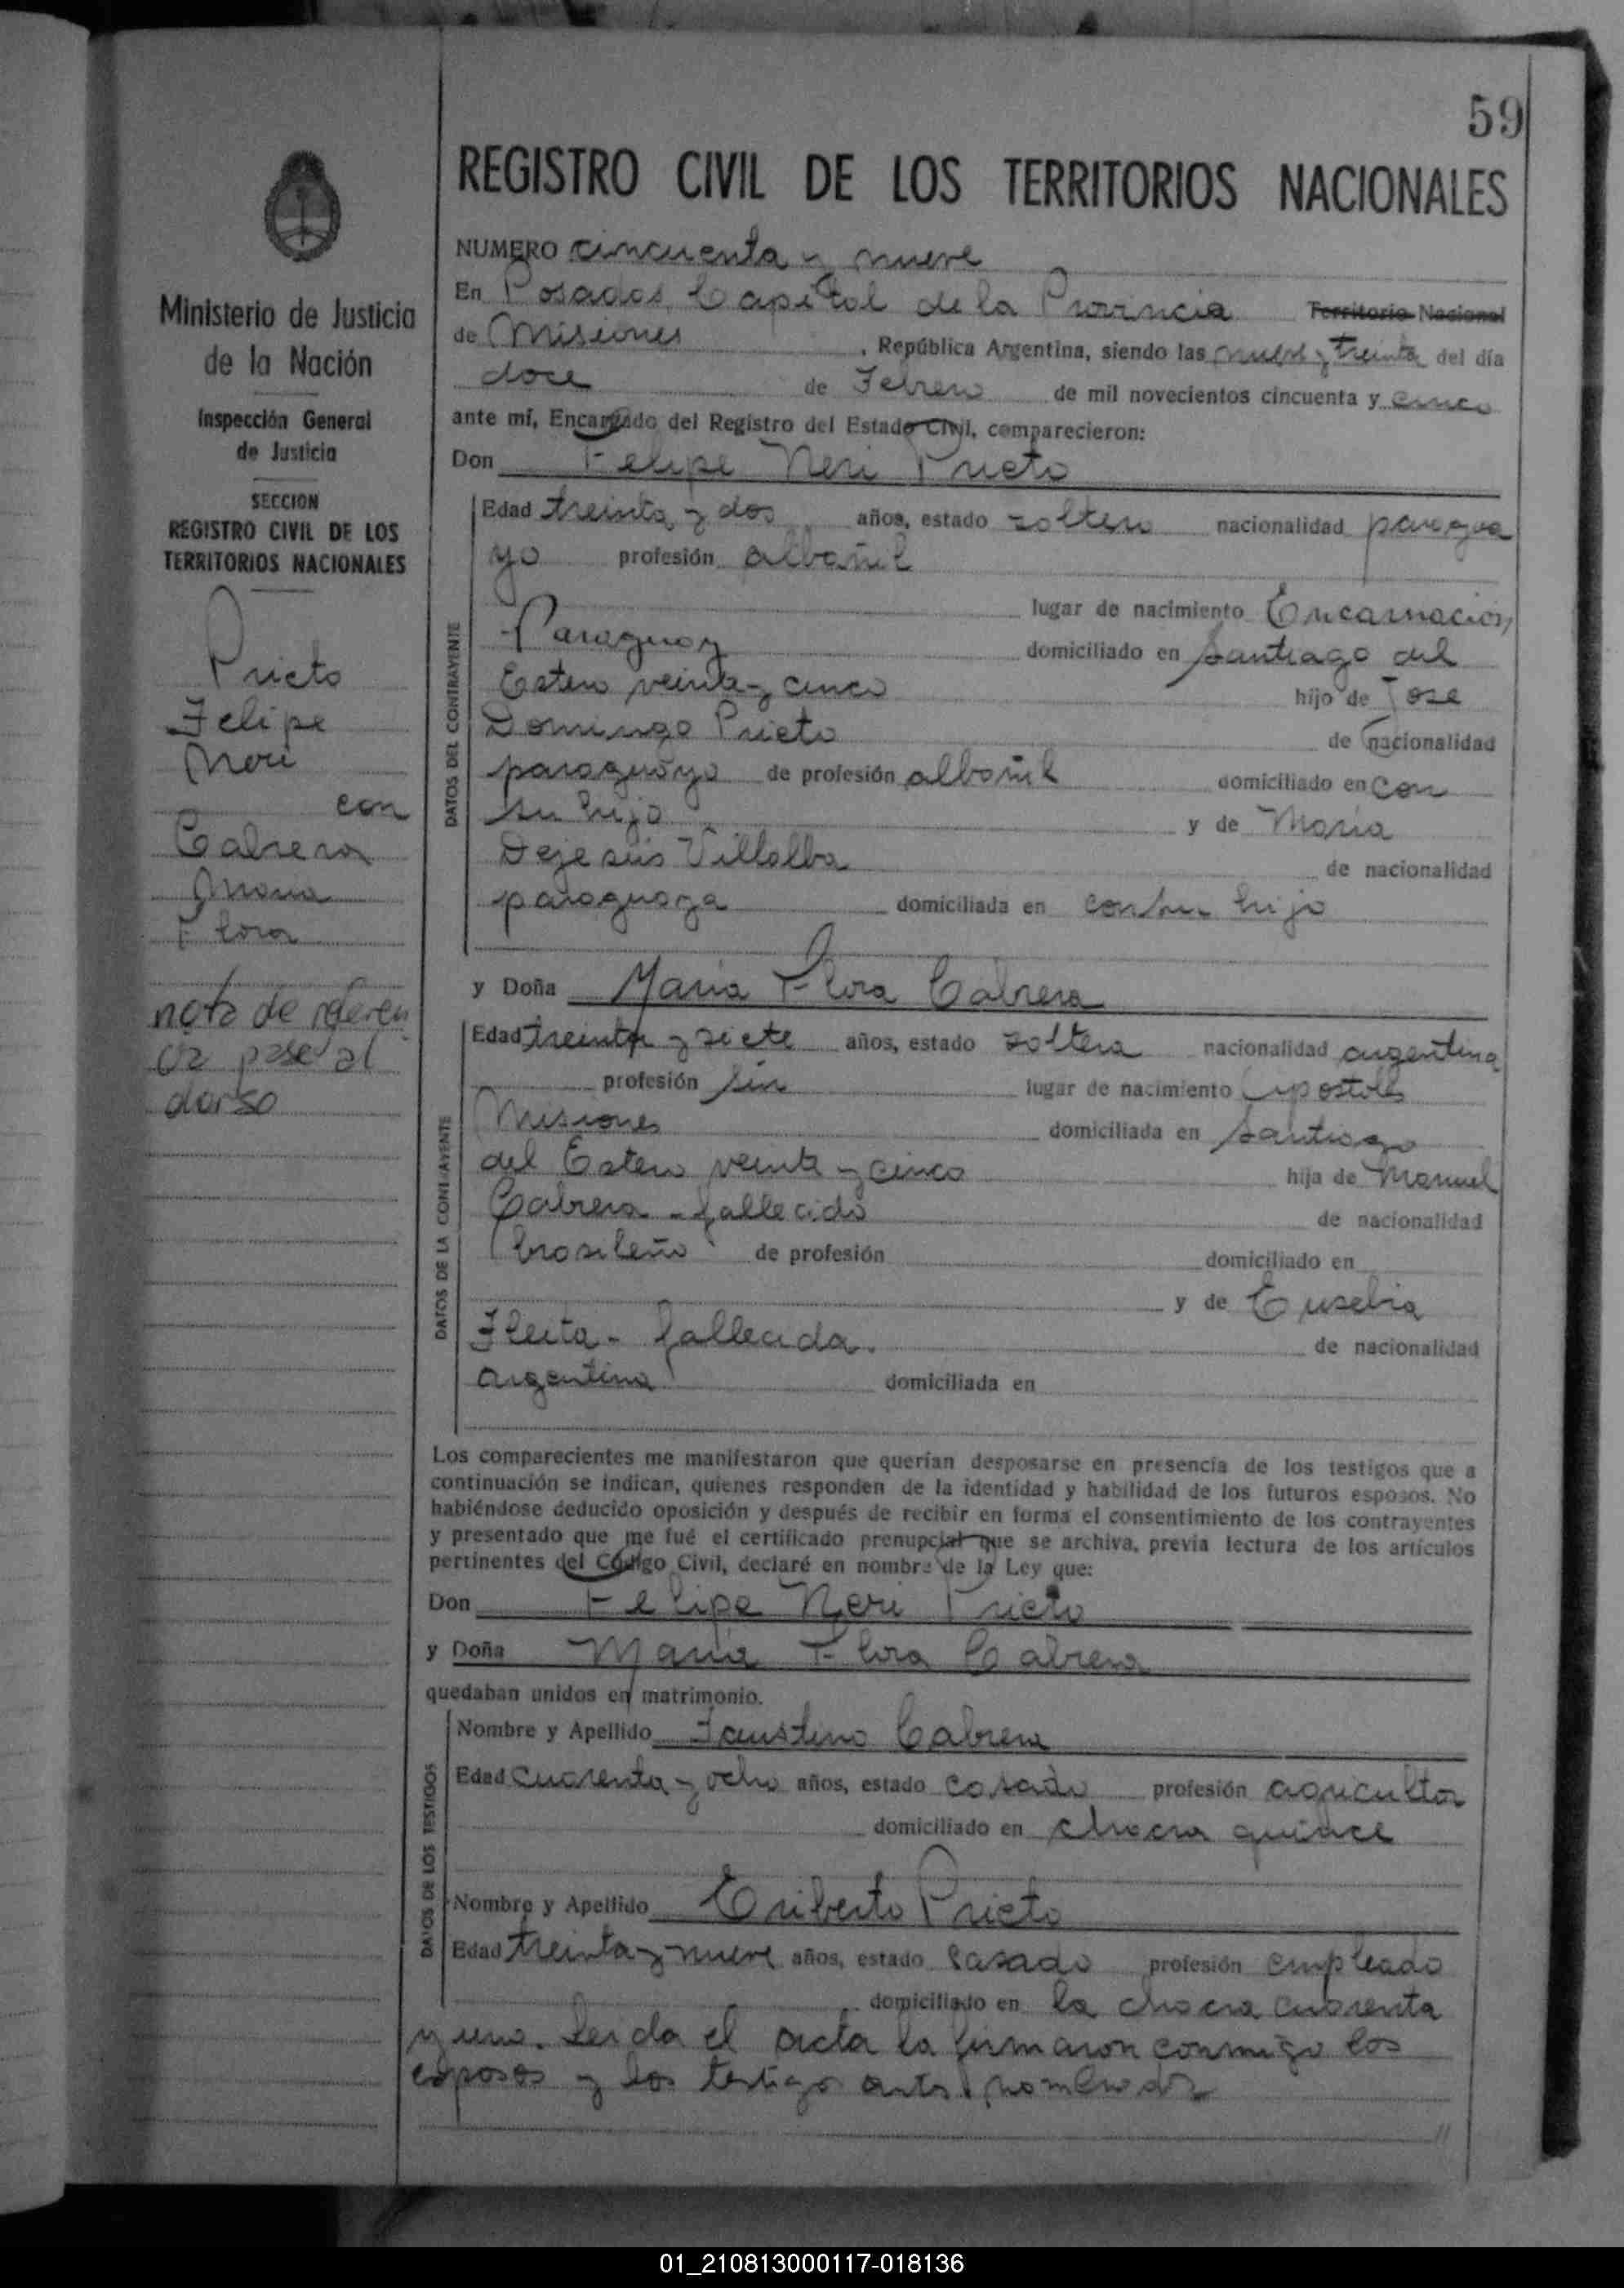 59
REGISTRO CIVIL DE LOS TERRITORIOS NACIONALES
Ministerio de Justicia
de la Nación
Inspección General
de Justicia
SECCION
REGISTRO CIVIL DE LOS
TERRITORIOS NACIONALES
Prieto
Felipe
Neri
con
Cabrera
Maria
Flora
nota de referen
cia pase al
dorso
NUMERO cincuenta y nueve
En Posadas Capital de la Provincia Territorio Nacional
de Misiones, República Argentina, siendo las nueve y treinta del día
doce de Febrero de mil novecientos cincuenta y cinco
ante mí, Encargado del Registro del Estado Civil, comparecieron:
Don Felipe Neri Prieto
DATOS DEL CONTRAYENTE
Edad treinta y dos años, estado soltero nacionalidad paragua
yo profesión albañil
lugar de nacimiento Encarnación
Paraguay domiciliado en Santiago del
Estero veinte y cinco hijo de Jose
Domingo Prieto de nacionalidad
paraguayo de profesión albañil domiciliado en con
su hijo y de Maria
Dejesús Villalba de nacionalidad
paraguaya domiciliada en con su hijo
y Doña María Flora Cabrera
DATOS DE LA CONTRAYENTE
Edad treinta y siete años, estado soltera nacionalidad argentina
profesión sin lugar de nacimiento Apostoles
Misiones domiciliada en Santiago
del Estero veinte y cinco hija de Manuel
Cabrera - fallecido de nacionalidad
brasileño de profesión domiciliado en
y de Eusebia
Fleita - fallecida. de nacionalidad
argentina domiciliada en
Los comparecientes me manifestaron que querían desposarse en presencia de los testigos que a
continuación se indican, quienes responden de la identidad y habilidad de los futuros esposos. No
habiéndose deducido oposición y después de recibir en forma el consentimiento de los contrayentes
y presentado que me fué el certificado prenupcial que se archiva, previa lectura de los artículos
pertinentes del Código Civil, declaré en nombre de la Ley que:
Don Felipe Neri Prieto
y Doña María Flora Cabrera
quedaban unidos en matrimonio.
DATOS DE LOS TESTIGOS
Nombre y Apellido Faustino Cabrera
Edad cuarenta y ocho años, estado casado profesión agricultor
domiciliado en chacra quince
Nombre y Apellido Eriberto Prieto
Edad treinta y nueve años, estado casado profesión empleado
domiciliado en la chacra cuarenta
y uno. Leida el acta la firmaron conmigo los
esposos y los testigos antes nombrados
//
01_210813000117-018136